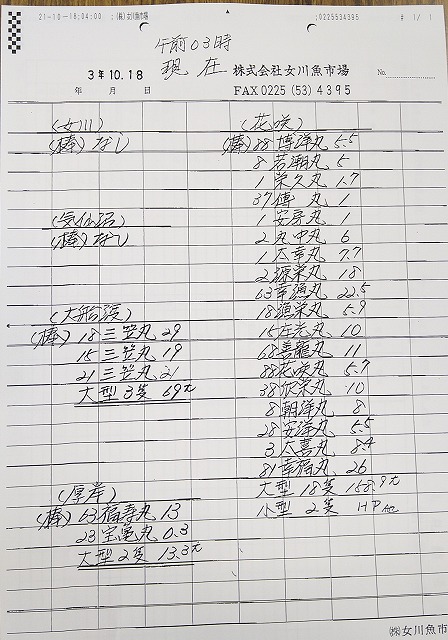 21-10-18;04:00 ;(株)女川魚市場 ;0225534395 # 1/ 1
午前03時
現在
3年10.18
年 月 日
株式会社女川魚市場
No.
FAX0225 (53) 4395
(女川)
(棒) なし
(気仙沼)
(棒) なし
(大船渡)
(棒) 18三笠丸 29
15三笠丸 19
21三笠丸 21
大型3隻 69t
(厚岸)
(棒) 63福寿丸 13
23宝亀丸 0.3
大型2隻 13.3t
(花咲)
(棒) 88博洋丸 5.5
8若潮丸 5
1栄久丸 1.7
37傳丸 1
1安房丸 1
2丸中丸 6
1太幸丸 7.7
2源栄丸 18
63幸漁丸 22.5
18漁栄丸 5.9
15庄光丸 10
68善龍丸 11
88花咲丸 5.7
38依栄丸 10
8朝洋丸 8
28安洋丸 5.5
3太喜丸 8.4
81幸福丸 26
大型 18隻 158.9t
小型 2隻 HP
㈱女川魚市